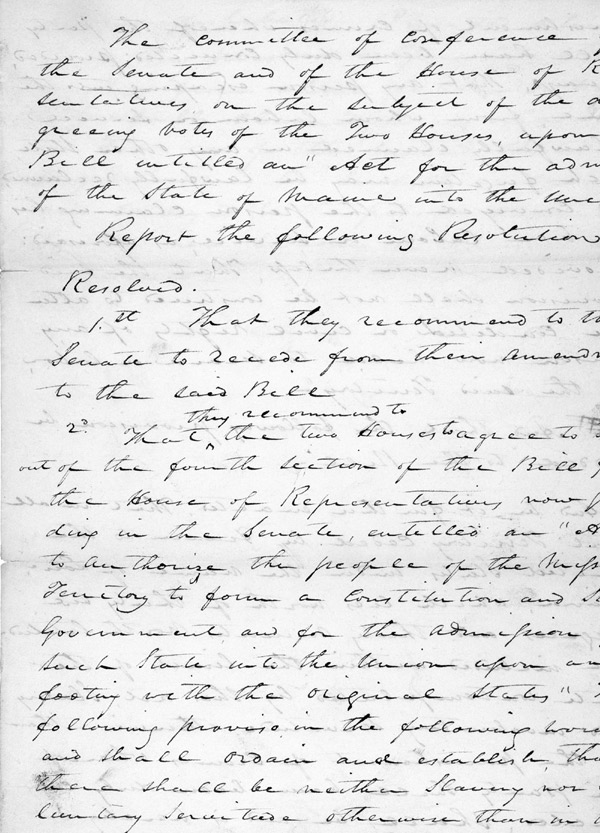 The committee of conference
the Senate and of the House of R
sentatives on the subject of the d
greeing votes of the Two Houses, upon
Bill entitled an " Act for the adm
of the State of Maine into the Un
Report the following Resolution
Resolved.
1.st That they recommend to th
Senate to recede from their amend
to the said Bill
they recommend to
2d That ^ the two Houses to agree to
out of the fourth section of the Bill
the House of Representatives now p
ding in the Senate, entitled an "A
to authorize the people of the Miss
Territory to form a Constitution and S
Government and for the admission
such State into the Union upon an
footing with the original States"
following proviso in the following wor
and shall ordain and establish, tha
there shall be neither Slavery nor
luntary Servitude otherwise than in